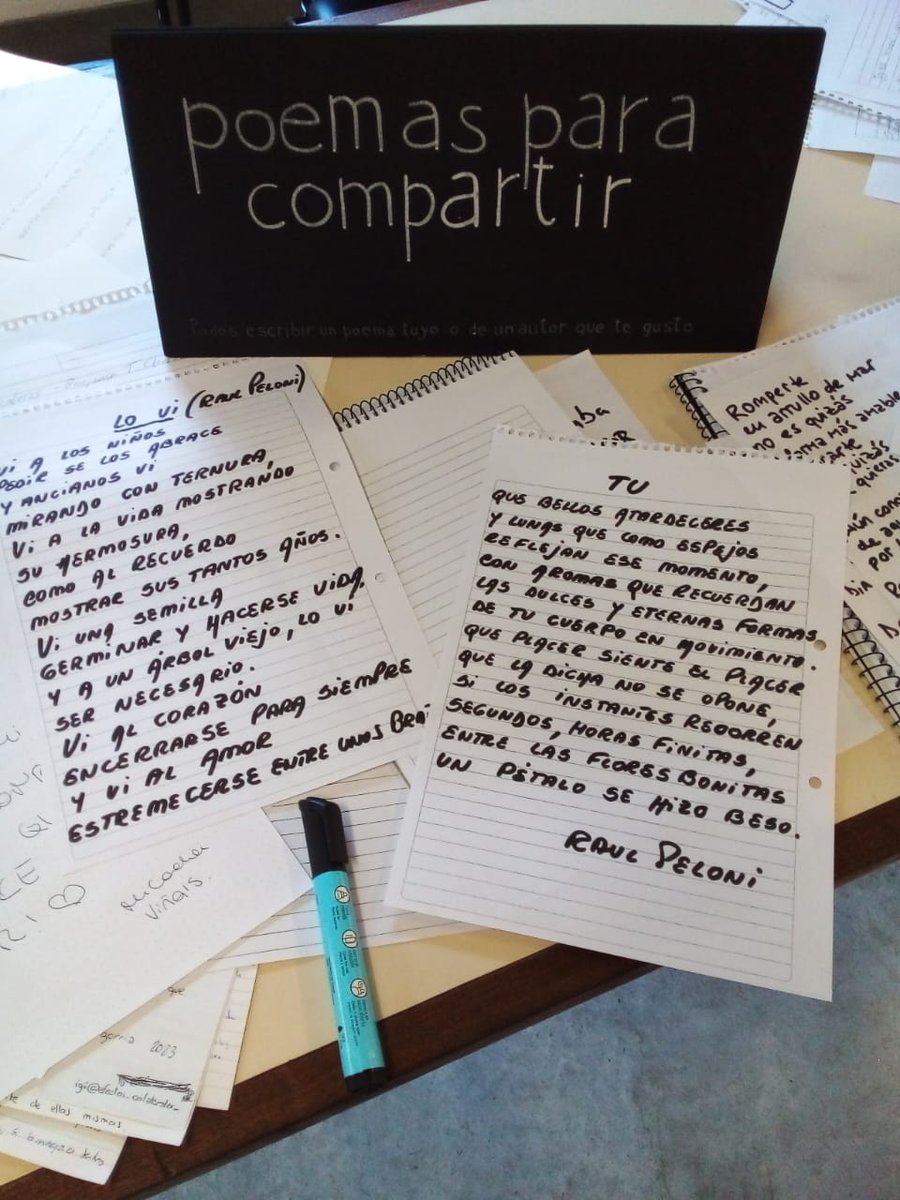 poemas para
compartir
Podes escribir un poema tuyo o de un autor que te guste
LO Vi (RAUL PELONi)
Vi A LOS NiÑOS
PEDIR SE LOS ABRACE
Y ANCIANOS Vi
MIRANDO CON TERNURA,
Vi A LA VIDA MOSTRANDO
SU HERMOSURA,
COMO AL RECUERDO
MOSTRAR SUS TANTOS AÑOS.
Vi UNA SEMILLA
GERMINAR Y HACERSE VIDA,
Y A UN ÁRBOL VIEJO, LO Vi
SER NECESARIO.
Vi AL CORAZÓN
ENCERRARSE PARA SIEMPRE
Y Vi AL AMOR
ESTREMECERSE ENTRE UNOS BRA-
TU
QUE BELLOS ATARDECERES
Y LUNAS QUE COMO ESPEJOS
REFLEJAN ESE MOMENTO,
CON AROMAS QUE RECUERDAN
LAS DULCES Y ETERNAS FORMAS
DE TU CUERPO EN MOVIMIENTO.
QUE PLACER SIENTE EL PLACER
QUE LA DICHA NO SE OPONE,
SI LOS INSTANTES RECORREN
SEGUNDOS, HORAS FINITAS,
ENTRE LAS FLORES BONITAS
UN PÉTALO SE HIZO BESO.
RAUL PELONI
Romperte
en arrullo de mar
no es quizás
forma más amable
quizás
quieras
de
por
Viñais.
2023
que
de ellas mismas